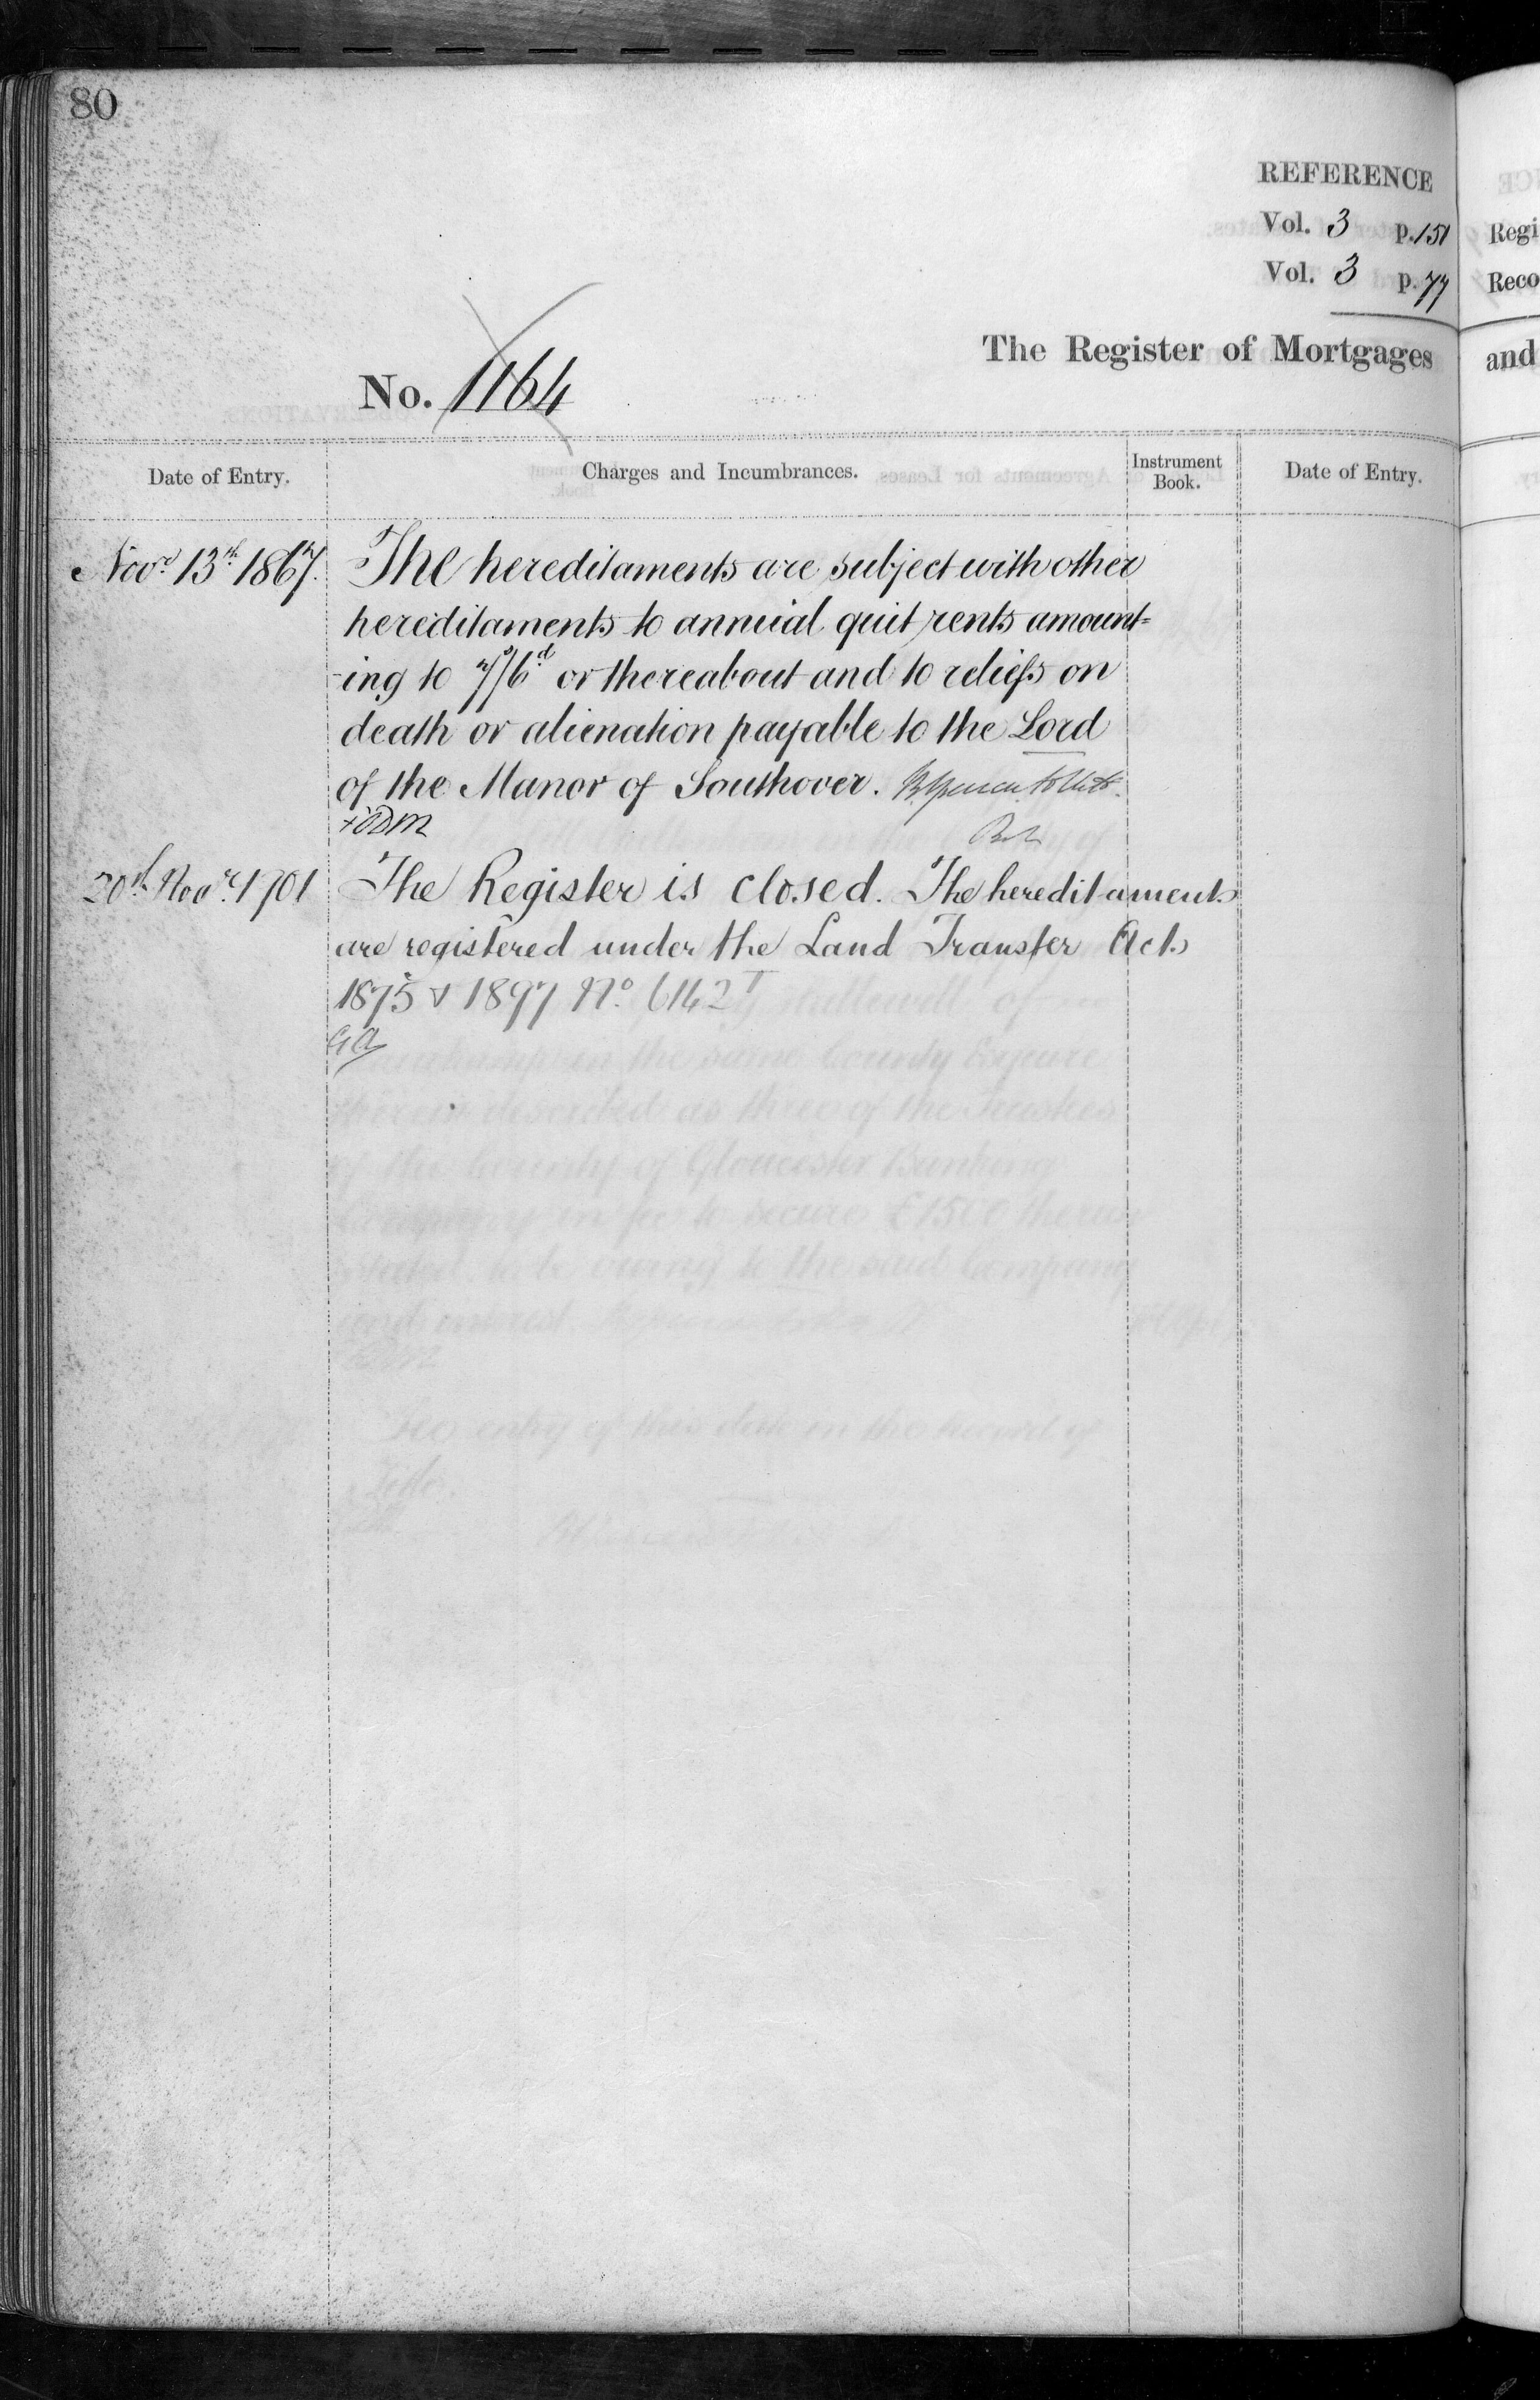 80
REFERENCE
Vol. 3 p. 151 Regi
Vol. 3 p. 77 Reco
The Register of Mortgages and
No. 1164
Date of Entry. Charges and Incumbrances. Instrument Book. Date of Entry.
Novr 13th 1867. The hereditaments are subject with other
hereditaments to annual quit rents amount=
-ing to 7s/6d or thereabout and to reliefs on
death or alienation payable to the Lord
of the Manor of Southover.
+ODM
20th Novr. 1901 The Register is closed. The hereditaments
are registered under the Land Transfer Acts
1875 & 1897 No. 6142
GA